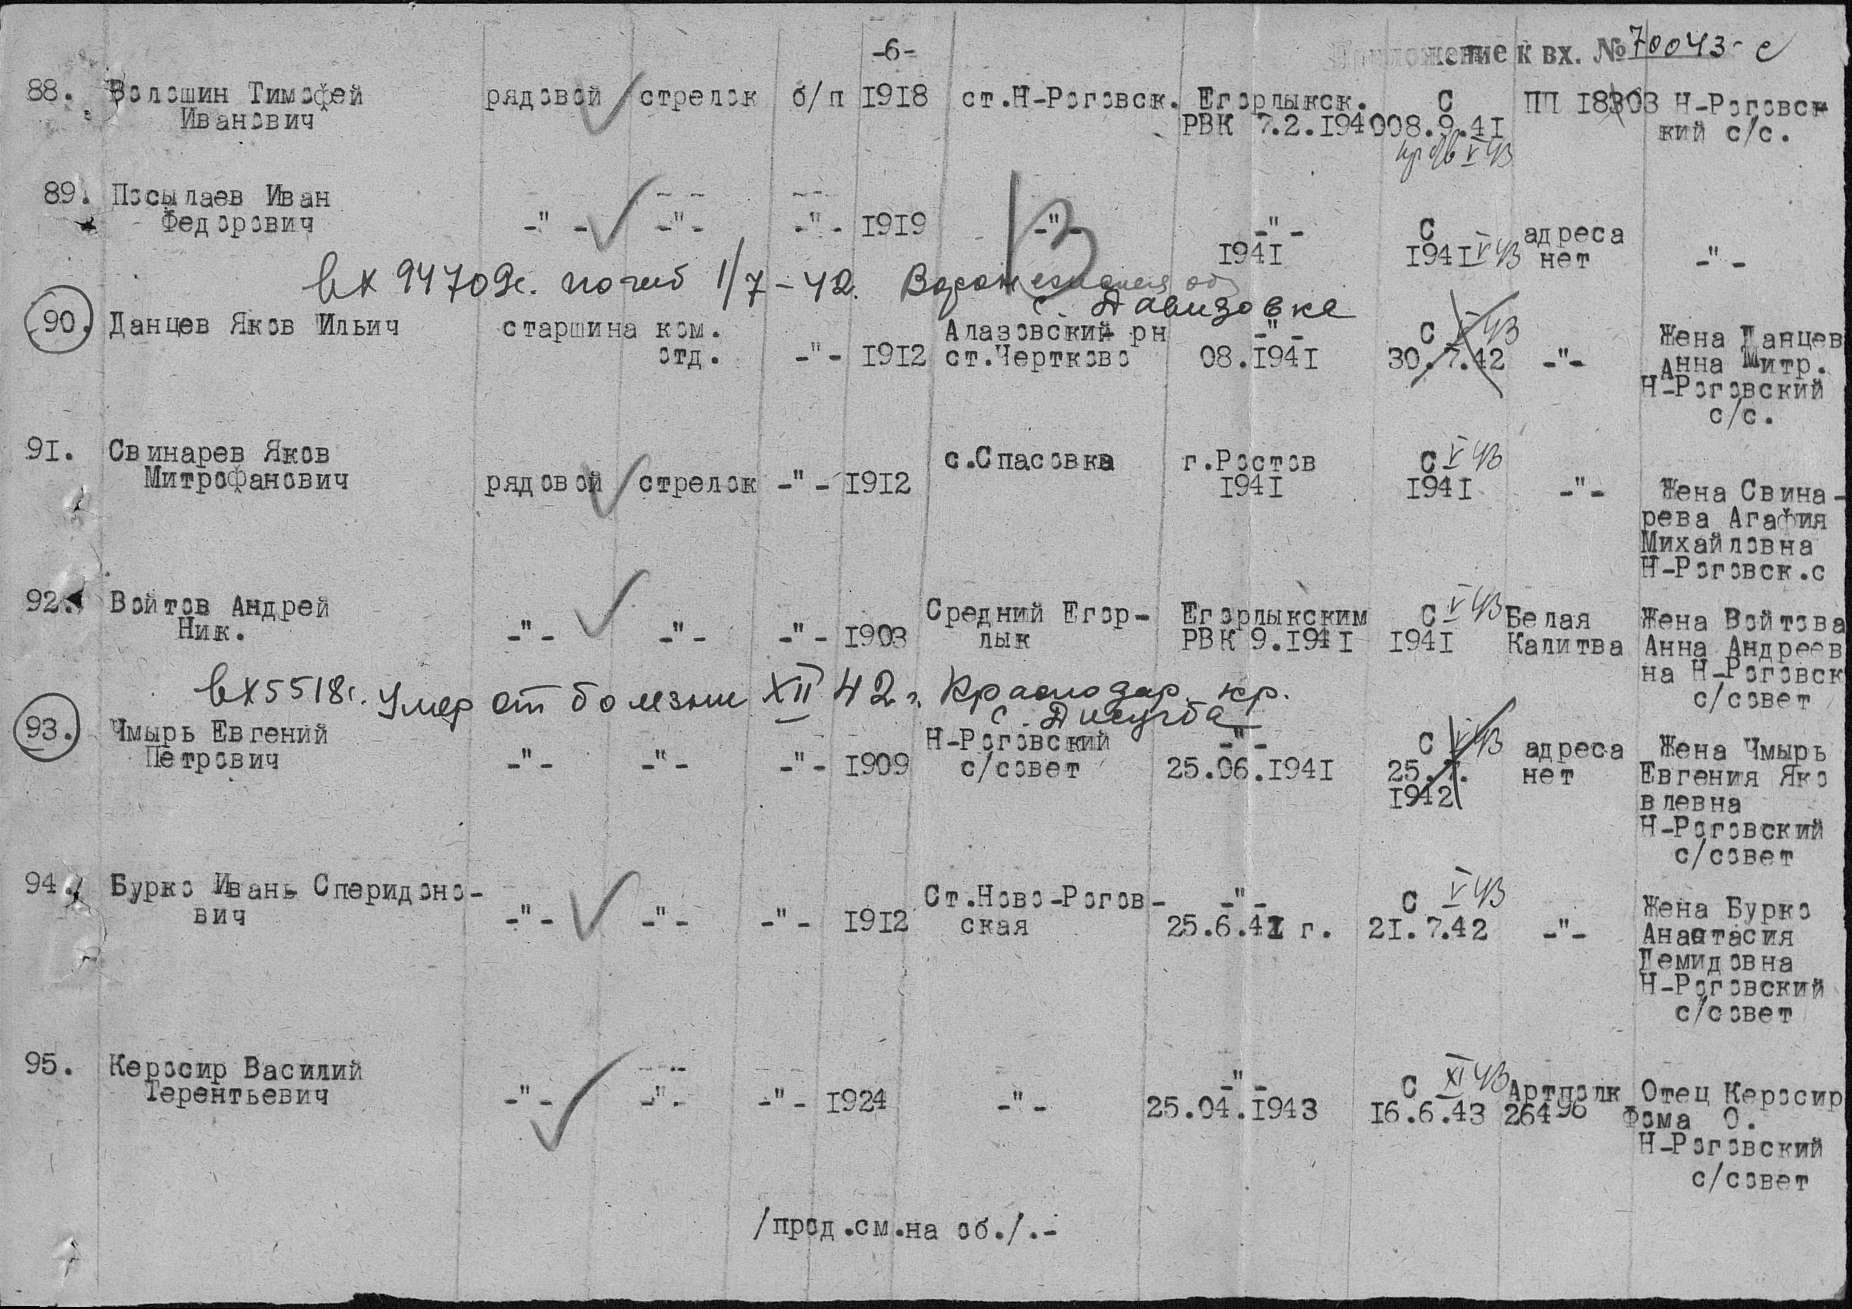 -6-
Приложение к вх. № 70043-с
88. Волошин Тимофей рядовой стрелок б/п 1918 ст.Н-Роговск. Егорлыкск. С ПП 18303 Н-Роговск
Иванович РВК 7.2.1940 08.9.41 кий с/с.
V 43
89. Посылаев Иван
Федорович -"- -"- -"- 1919 -"- -"- С адреса
1941 1941 V 43 нет -"-
вх 94709с. погиб 1/7-42. Воронежская об
с. Давизовка
90. Данцев Яков Ильич старшина ком. Алазовский рн -"- С V 43 Жена Данцев
отд. -"- 1912 ст.Чертково 08.1941 30.7.42 -"- Анна Митр.
Н-Роговский
с/с.
91. Свинарев Яков с.Спасовка г.Ростов С V 43
Митрофанович рядовой стрелок -"- 1912 1941 1941 -"- Жена Свина-
рева Агафия
Михайловна
Н-Роговск.с
92. Войтов Андрей Средний Егор- Егорлыкским С V 43 Белая Жена Войтова
Ник. -"- -"- -"- 1903 лык РВК 9.1941 1941 Калитва Анна Андреев
на Н-Роговск
с/совет
вх5518с. Умер от болезни XII 42 г. Краснодар. кр.
93. Чмырь Евгений Н-Роговский -"- С V 43 адреса Жена Чмырь
Петрович -"- -"- -"- 1909 с/совет 25.06.1941 25.7. нет Евгения Яко
1942 влевна
Н-Роговский
с/совет
94. Бурко Ивань Сперидоно- Ст.Ново-Рогов- -"- С V 43 Жена Бурко
вич -"- -"- -"- 1912 ская 25.6.41 г. 21.7.42 -"- Анастасия
Демидовна
Н-Роговский
с/совет
95. Керосир Василий -"- С XI 43 Артполк Отец Керосир
Терентьевич -"- -"- -"- 1924 -"- 25.04.1943 16.6.43 26496 Фома О.
Н-Роговский
с/совет
/прод.см.на об./.-